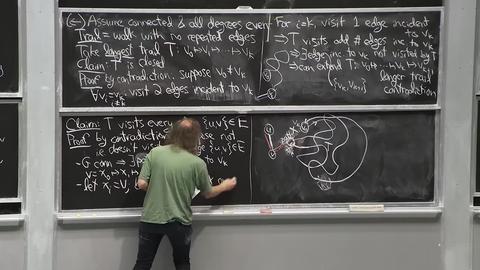 (⇐) Assume connected & all degrees even
Trail = walk with no repeated edges
Take largest trail T: v₀↦v₁↦…↦vₖ
Claim: T is closed
Proof by contradiction. suppose v₀≠vₖ
∀vᵢ=vₖ, i≠k visit 2 edges incident to vₖ
For i=k, visit 1 edge incident to vₖ
⇒T visits odd # edges inc to vₖ
⇒∃edge inc to vₖ not visited by T
⇒can extend T: v₀↦…↦vₖ↦
{vₖ,vₖ₊₁}
longer trail
contradiction
Claim: T visits every {u,v}∈E
Proof by contradiction: not
i.e. doesn't visit {u,v}∈E
-G conn ⇒ ∃ to vₖ
v=x₀↦x₁↦
-let xᵢ=vⱼ